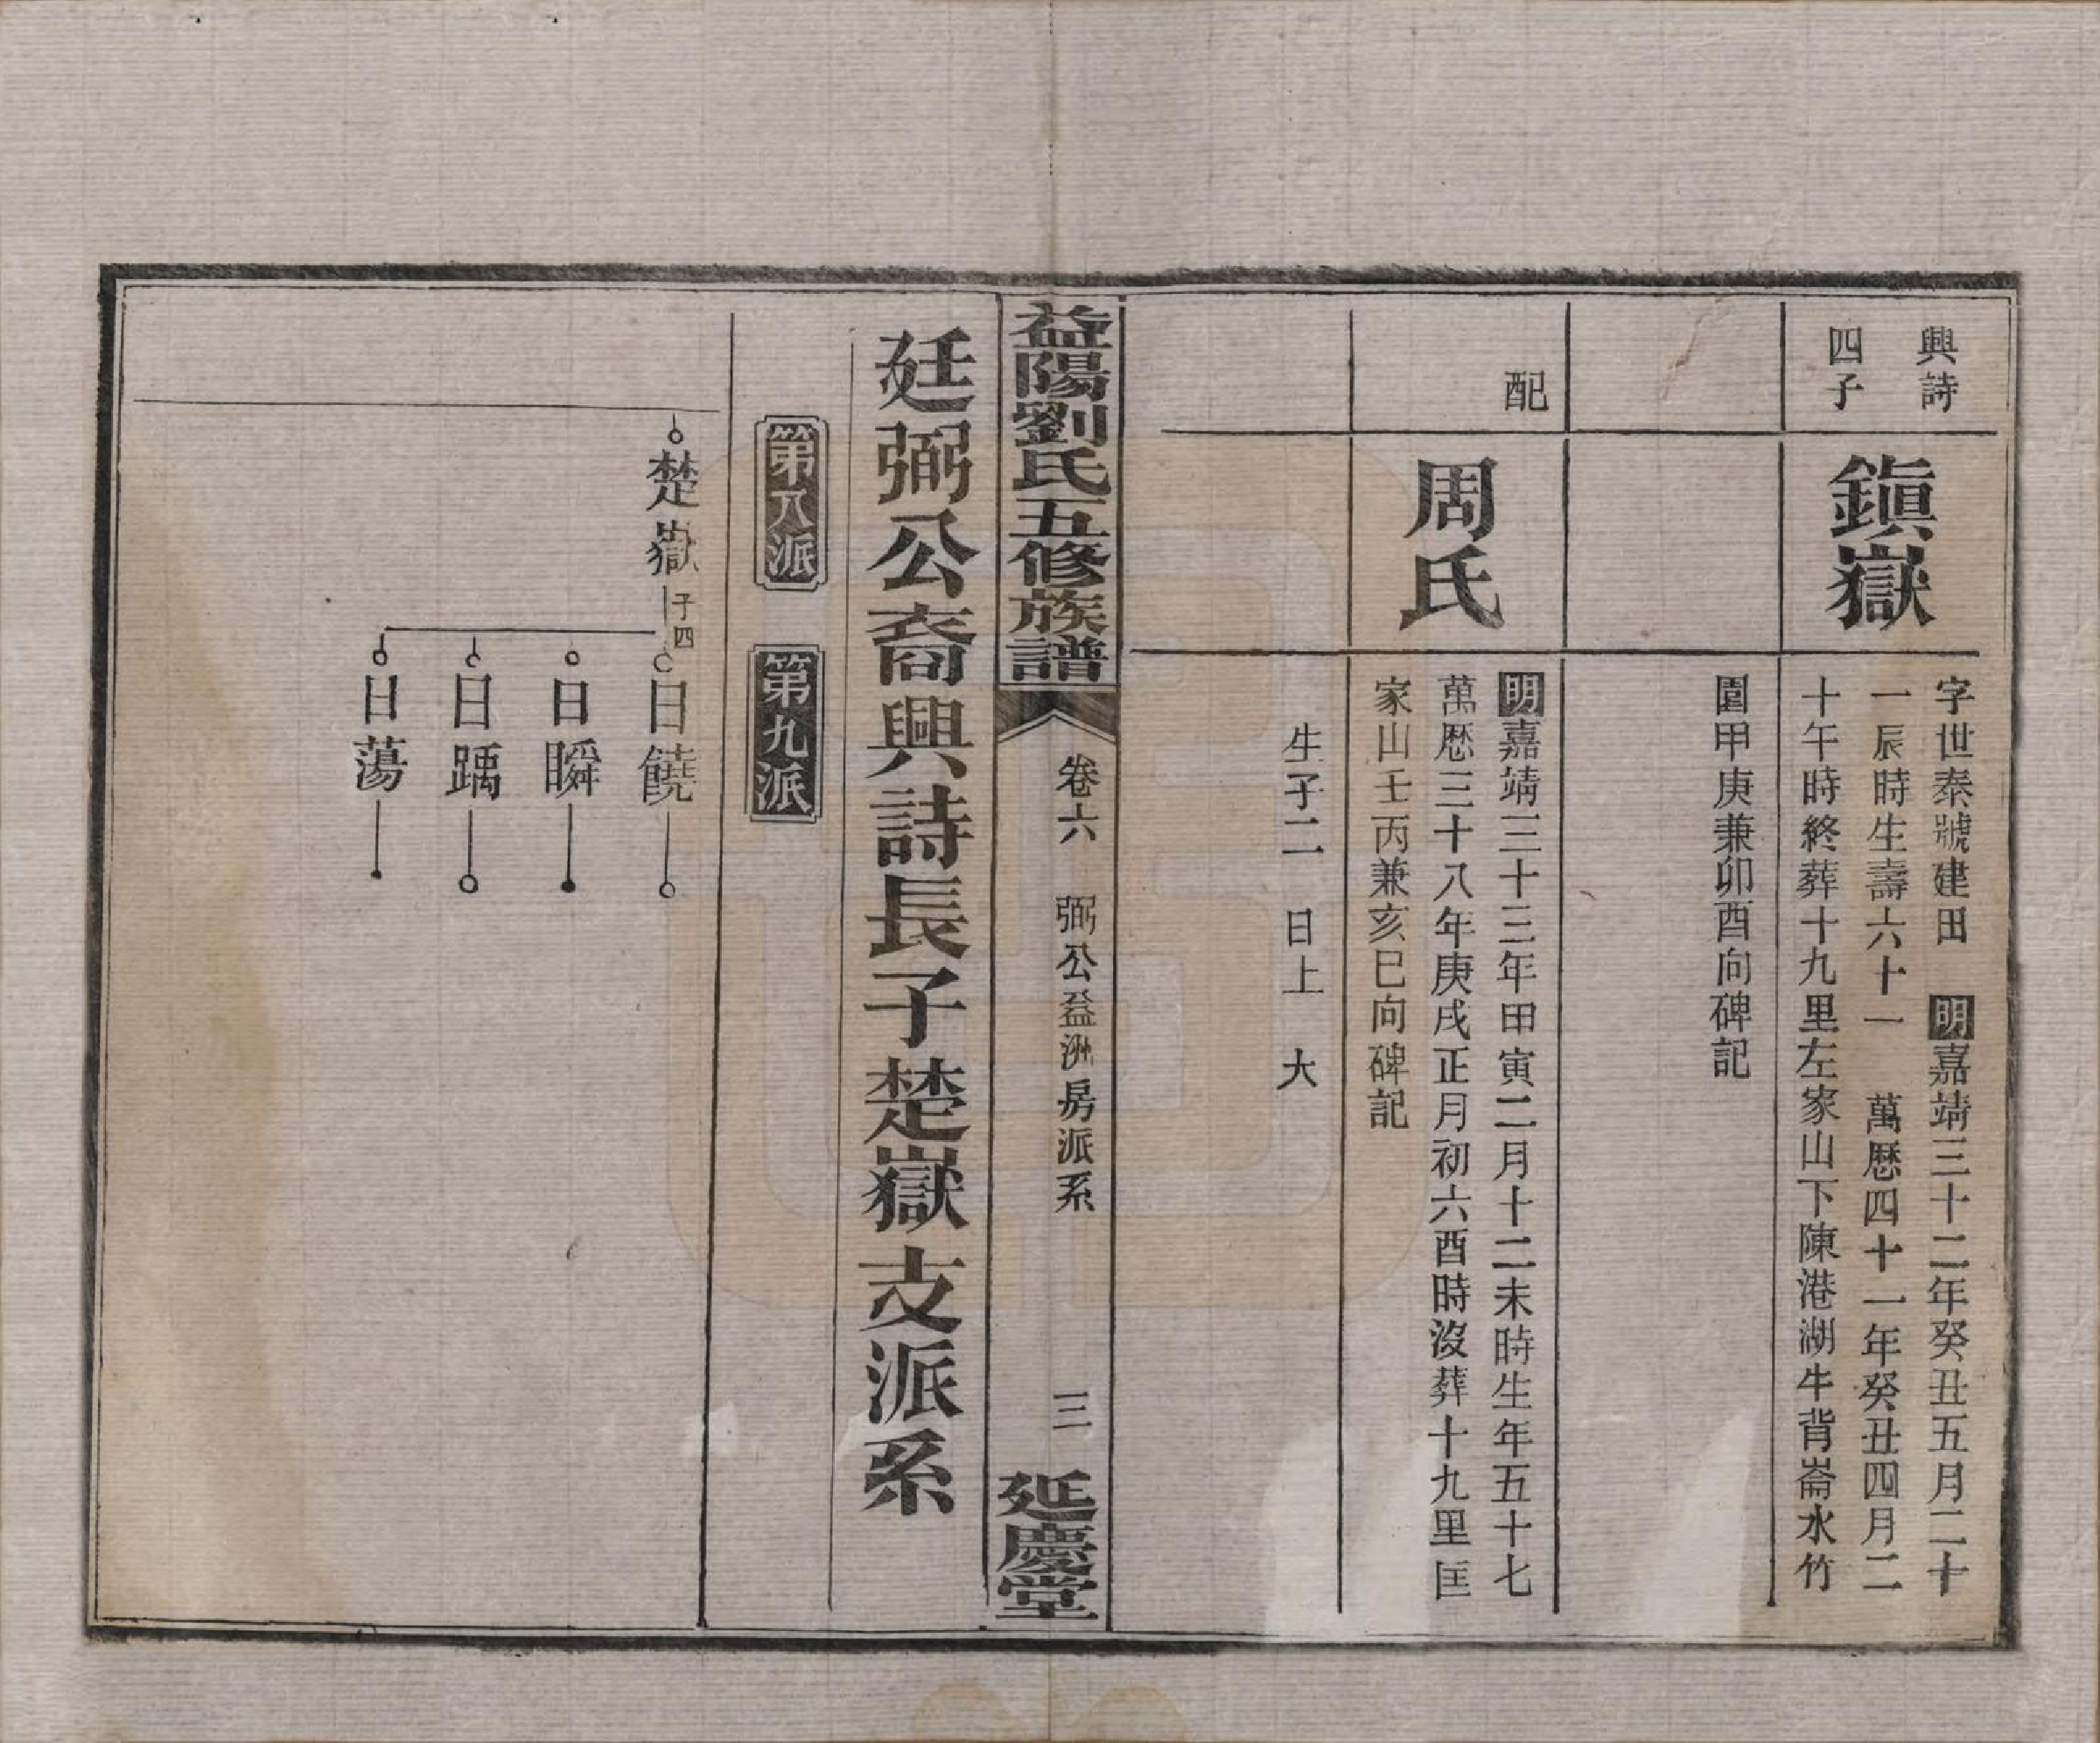 興詩
四子
鎮嶽
字世泰號建田　明嘉靖三十二年癸丑五月二十
一辰時生壽六十一　萬歷四十一年癸丑四月二
十午時終葬十九里左家山下陳港湖牛背崙水竹
園甲庚兼卯酉向碑記
配
周氏
明嘉靖三十三年甲寅二月十二未時生年五十七
萬歷三十八年庚戌正月初六酉時沒葬十九里匡
家山壬丙兼亥巳向碑記
生子二　日上　大
益陽劉氏五修族譜
卷六　弼公益洲房派系
三
延慶堂
廷弼公裔興詩長子楚嶽支派系
第八派
第九派
楚嶽
子四
日饒
日瞬
日踽
日蕩